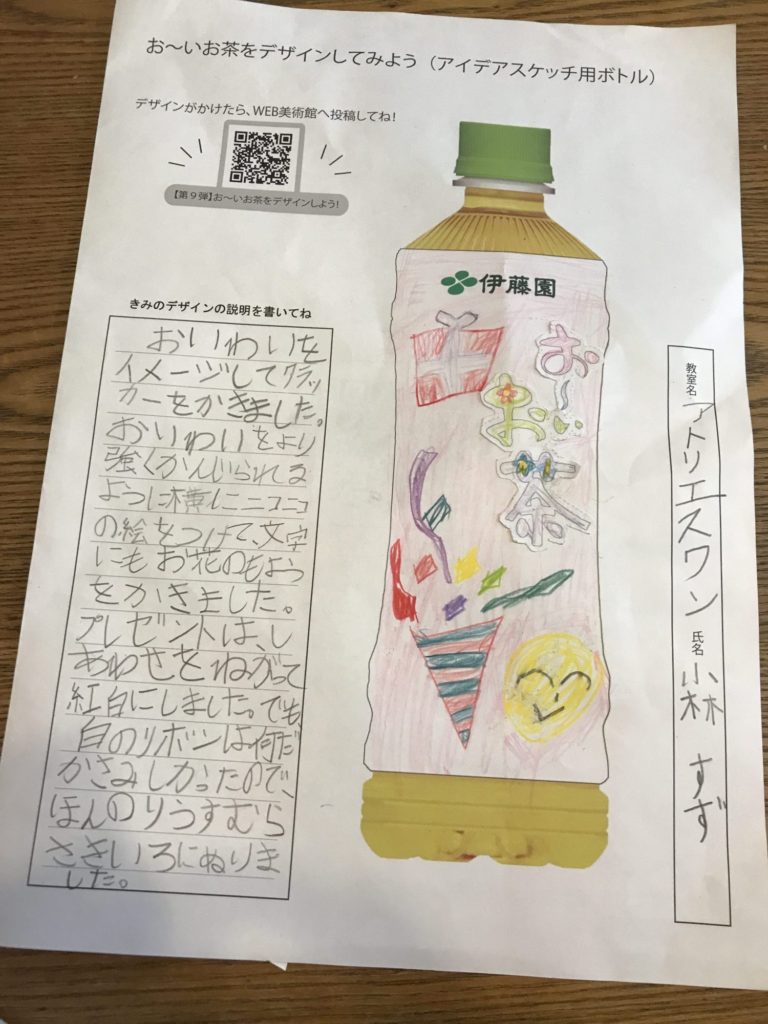 お～いお茶をデザインしてみよう（アイデアスケッチ用ボトル）
デザインがかけたら、WEB美術館へ投稿してね！
【第9弾】お～いお茶をデザインしよう！
きみのデザインの説明を書いてね
おいわいを
イメージしてクラッ
カーをかきました。
おいわいをより
強くかんじられる
ように横にニコニコ
の絵をつけて、文字
にもお花のもよう
をかきました。
プレゼントは、し
あわせをねがって
紅白にしました。でも、
白のリボンは何だ
かさみしかったので、
ほんのりうすむら
さきいろにぬりま
した。
伊藤園
お～い
お茶
教室名 アトリエスワン 氏名 小林 すず